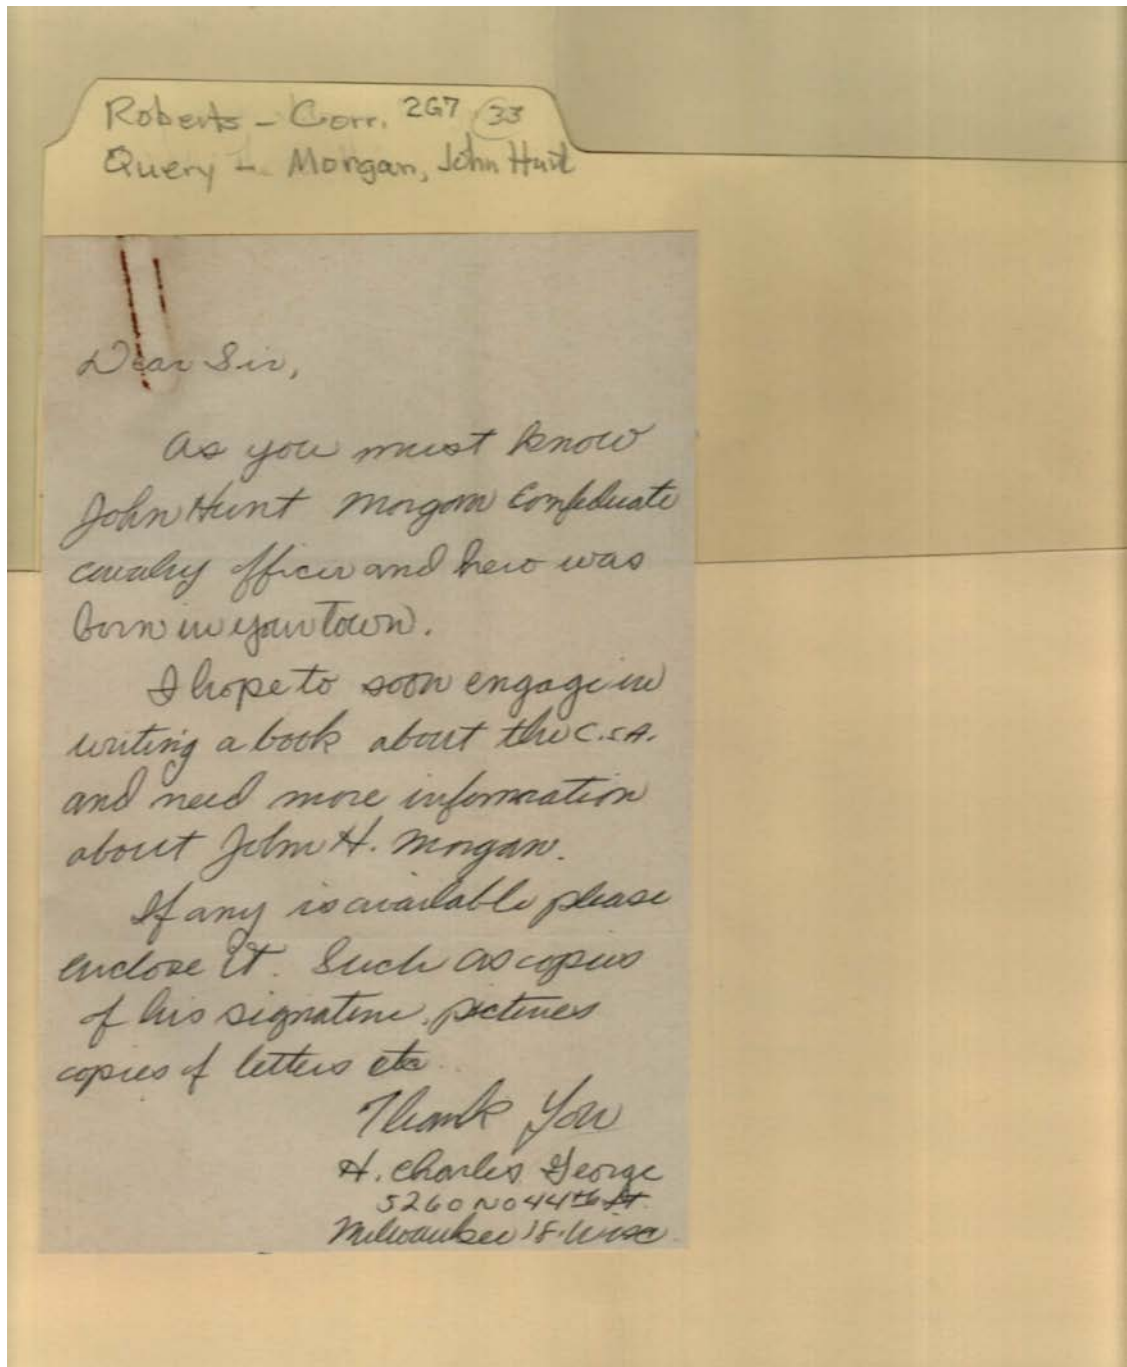 Roberts - Corr. 2G7 33
Query - Morgan, John Hunt
Dear Sir,
As you must know
John Hunt Morgan Confederate
cavalry officer and hero was
born in your town.
I hope to soon engage in
writing a book about the C.S.A.
and need more information
about John H. Morgan.
If any is available please
enclose it. Such as copies
of his signature, pictures
copies of letters etc.
Thank You
H. Charles George
5260 No 44th St.
Milwaukee 18. Wisc